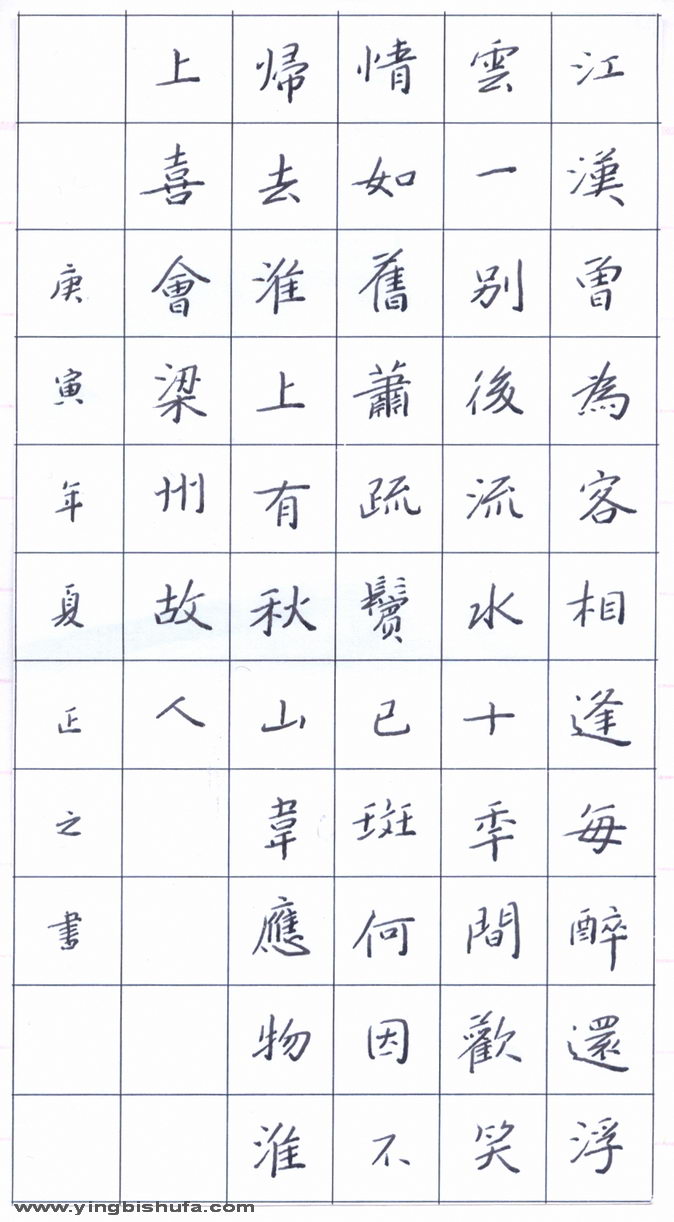 江漢曾為客相逢每醉還浮
雲一別後流水十年間歡笑
情如舊蕭疏鬢已斑何因不
歸去淮上有秋山韋應物淮
上喜會梁州故人
庚寅年夏正之書
www.yingbishufa.com